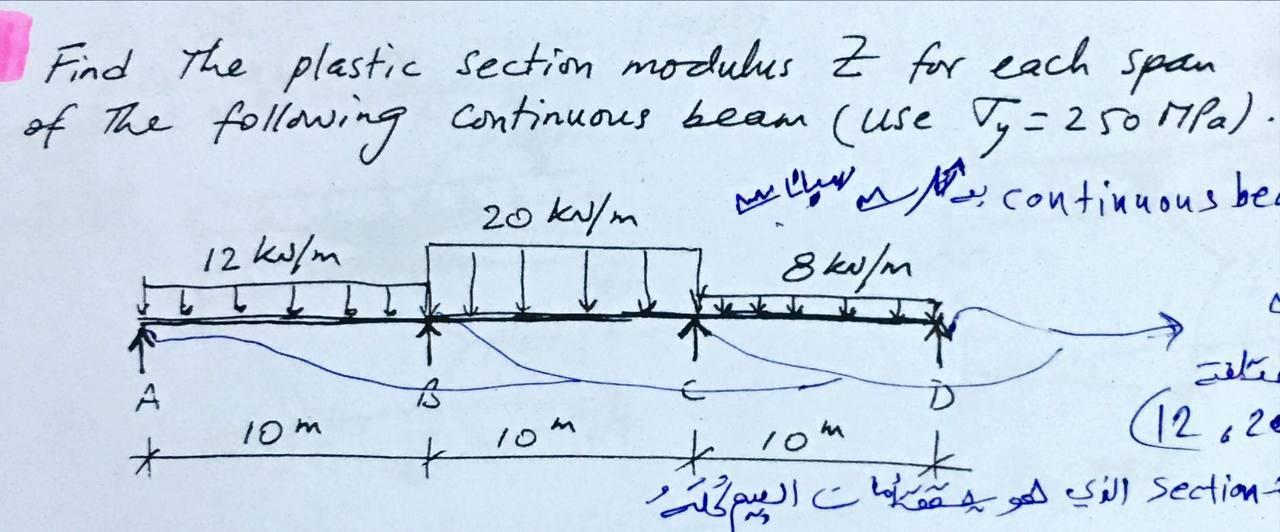 Find The plastic section modulus Z for each span
of The following continuous beam (use σy = 250 MPa).
continuous be
20 kN/m
12 kN/m
8 kN/m
A B C D
(12 , 2
10 m 10 m 10 m
section الذي هو